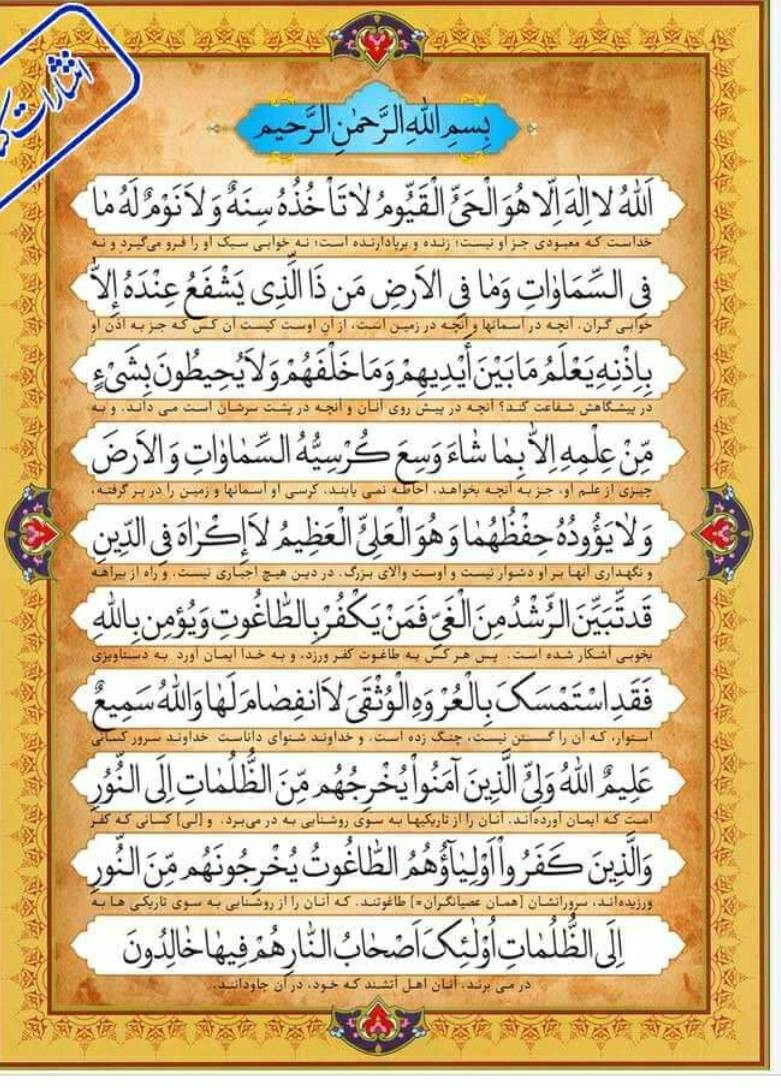 انتشارات
بِسمِ اللهِ الرَّحمٰنِ الرَّحیم
اَللهُ لا اِلٰهَ اِلّا هُوَ الْحَیُّ الْقَیُّومُ لاٰ تَأخُذُهُ سِنَةٌ وَ لاَ نَوْمٌ لَهُ مٰا
خداست که معبودی جز او نیست؛ زنده و برپادارنده است؛ نه خوابی سبک او را فرو می‌گیرد و نه
فِی السَّمَاوٰاتِ وَمٰا فِی الاَرضِ مَن ذَا الَّذِی یَشْفَعُ عِنْدَهُ إِلاّٰ
خوابی گران. آنچه در آسمانها و آنچه در زمین است، از آنِ اوست کیست آن کس که جز به اذن او
بِاِذْنِهِ یَعْلَمُ مٰا بَیْنَ أَیْدِیهِمْ وَ مَا خَلْفَهُمْ وَلاَ یُحِیطُونَ بِشَیْءٍ
در پیشگاهش شفاعت کند؟ آنچه در پیش روی آنان و آنچه در پشت سرشان است می داند. و به
مِّنْ عِلْمِهِ اِلاّٰ بِمٰا شٰاءَ وَسِعَ کُرْسِیُّهُ السَّمٰاوٰاتِ وَ الاَرضَ
چیزی از علم او، جز به آنچه بخواهد، احاطه نمی یابند. کرسی او آسمانها و زمین را در بر گرفته،
وَ لاٰ یَؤُودُهُ حِفْظُهُمٰا وَ هُوَ الْعَلِیُّ الْعَظِیمُ لاَ إِکْرٰاهَ فِی الدِّینِ
و نگهداری آنها بر او دشوار نیست و اوست والای بزرگ. در دین هیچ اجباری نیست. و راه از بیراهه
قَدتَّبَیَّنَ الرُّشْدُ مِنَ الْغَیِّ فَمَنْ یَکْفُرْ بِالطّٰاغُوتِ وَیُؤمِن بِاللهِ
بخوبی آشکار شده است. پس هر کس به طاغوت کفر ورزد، و به خدا ایمان آورد به دستاویزی
فَقَدِ اسْتَمْسَکَ بِالْعُرْوَةِ الْوُثْقَیَ لاَ انْفِصٰامَ لَهٰا وَاللهُ سَمِیعٌ
استوار، که آن را گسستن نیست، چنگ زده است. و خداوند شنوای داناست خداوند سرور کسانی
عَلِیمٌ اللهُ وَلِیُّ الَّذِینَ آمَنُواْ یُخْرِجُهُم مِّنَ الظُّلُمٰاتِ إِلَی النُّوُرِ
است که ایمان آورده‌اند. آنان را از تاریکیها به سوی روشنایی به در می‌برد. و [لی] کسانی که کفر
وَالَّذِینَ کَفَرُواْ اَوْلِیٰآؤُهُمُ الطّٰاغُوتُ یُخْرِجُونَهُم مِّنَ النُّورِ
ورزیده‌اند، سرورانشان [همان عصیانگران=] طاغوتند، که آنان را از روشنایی به سوی تاریکی ها به
اِلَی الظُّلُمٰاتِ اُوْلٰئِکَ اَصْحٰابُ النّٰارِ هُمْ فِیهٰا خٰالِدُونَ
در می برند. آنان اهل آتشند که خود، در آن جاودانند.